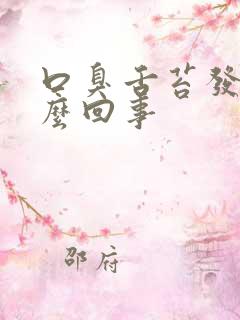 口臭舌苔發
麼回事
邵府